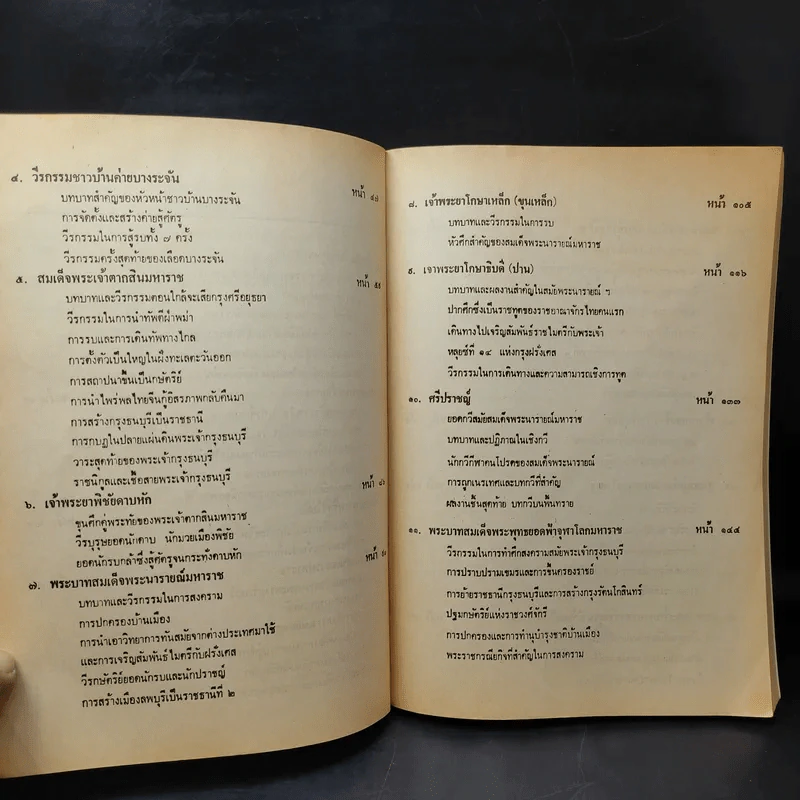 ๔. วีรกรรมชาวบ้านค่ายบางระจัน หน้า ๔๘
บทบาทสำคัญของหัวหน้าชาวบ้านบางระจัน
การจัดตั้งและสร้างค่ายสู้ศัตรู
วีรกรรมในการสู้รบทั้ง ๗ ครั้ง
วีรกรรมครั้งสุดท้ายของเลือดบางระจัน
๕. สมเด็จพระเจ้าตากสินมหาราช หน้า ๕๕
บทบาทและวีรกรรมตอนใกล้จะเสียกรุงศรีอยุธยา
วีรกรรมในการนำทัพตีฝ่าพม่า
การรบและการเดินทัพทางไกล
การตั้งตัวเป็นใหญ่ในฝั่งทะเลตะวันออก
การสถาปนาขึ้นเป็นกษัตริย์
การนำไพร่พลไทยจีนกู้อิสรภาพกลับคืนมา
การสร้างกรุงธนบุรีเป็นราชธานี
การกบฏในปลายแผ่นดินพระเจ้ากรุงธนบุรี
วาระสุดท้ายของพระเจ้ากรุงธนบุรี
ราชนิกูลและเชื้อสายพระเจ้ากรุงธนบุรี
๖. เจ้าพระยาพิชัยดาบหัก หน้า
ขุนศึกคู่พระทัยของพระเจ้าตากสินมหาราช
วีรบุรุษยอดนักดาบ นักมวยเมืองพิชัย
ยอดนักรบกล้าซึ่งสู้ศัตรูจนกระทั่งดาบหัก
๗. พระบาทสมเด็จพระนารายณ์มหาราช หน้า
บทบาทและวีรกรรมในการสงคราม
การปกครองบ้านเมือง
การนำเอาวิทยาการทันสมัยจากต่างประเทศมาใช้
และการเจริญสัมพันธ์ไมตรีกับฝรั่งเศส
วีรกษัตริย์ยอดนักรบและนักปราชญ์
การสร้างเมืองลพบุรีเป็นราชธานีที่ ๒
๘. เจ้าพระยาโกษาเหล็ก (ขุนเหล็ก) หน้า ๑๐๕
บทบาทและวีรกรรมในการรบ
หัวศึกสำคัญของสมเด็จพระนารายณ์มหาราช
๙. เจ้าพระยาโกษาธิบดี (ปาน) หน้า ๑๑๖
บทบาทและผลงานสำคัญในสมัยพระนารายณ์ ฯ
ปากศึกซึ่งเป็นราชทูตของราชอาณาจักรไทยคนแรก
เดินทางไปเจริญสัมพันธ์ราชไมตรีกับพระเจ้า
หลุยซ์ที่ ๑๔ แห่งกรุงฝรั่งเศส
วีรกรรมในการเดินทางและความสามารถเชิงการทูต
๑๐. ศรีปราชญ์ หน้า ๑๓๓
ยอดกวีสมัยสมเด็จพระนารายณ์มหาราช
บทบาทและปฏิภาณในเชิงกวี
นักกวีกีฬาคนโปรดของสมเด็จพระนารายณ์
การถูกเนรเทศและบทกวีที่สำคัญ
ผลงานชิ้นสุดท้าย บทกวีบนพื้นทราย
๑๑. พระบาทสมเด็จพระพุทธยอดฟ้าจุฬาโลกมหาราช หน้า ๑๔๔
วีรกรรมในการทำศึกสงครามสมัยพระเจ้ากรุงธนบุรี
การปราบปรามเขมรและการขึ้นครองราชย์
การย้ายราชธานีกรุงธนบุรีและการสร้างกรุงรัตนโกสินทร์
ปฐมกษัตริย์แห่งราชวงศ์จักรี
การปกครองและการทำนุบำรุงชาติบ้านเมือง
พระราชกรณียกิจที่สำคัญในการสงคราม